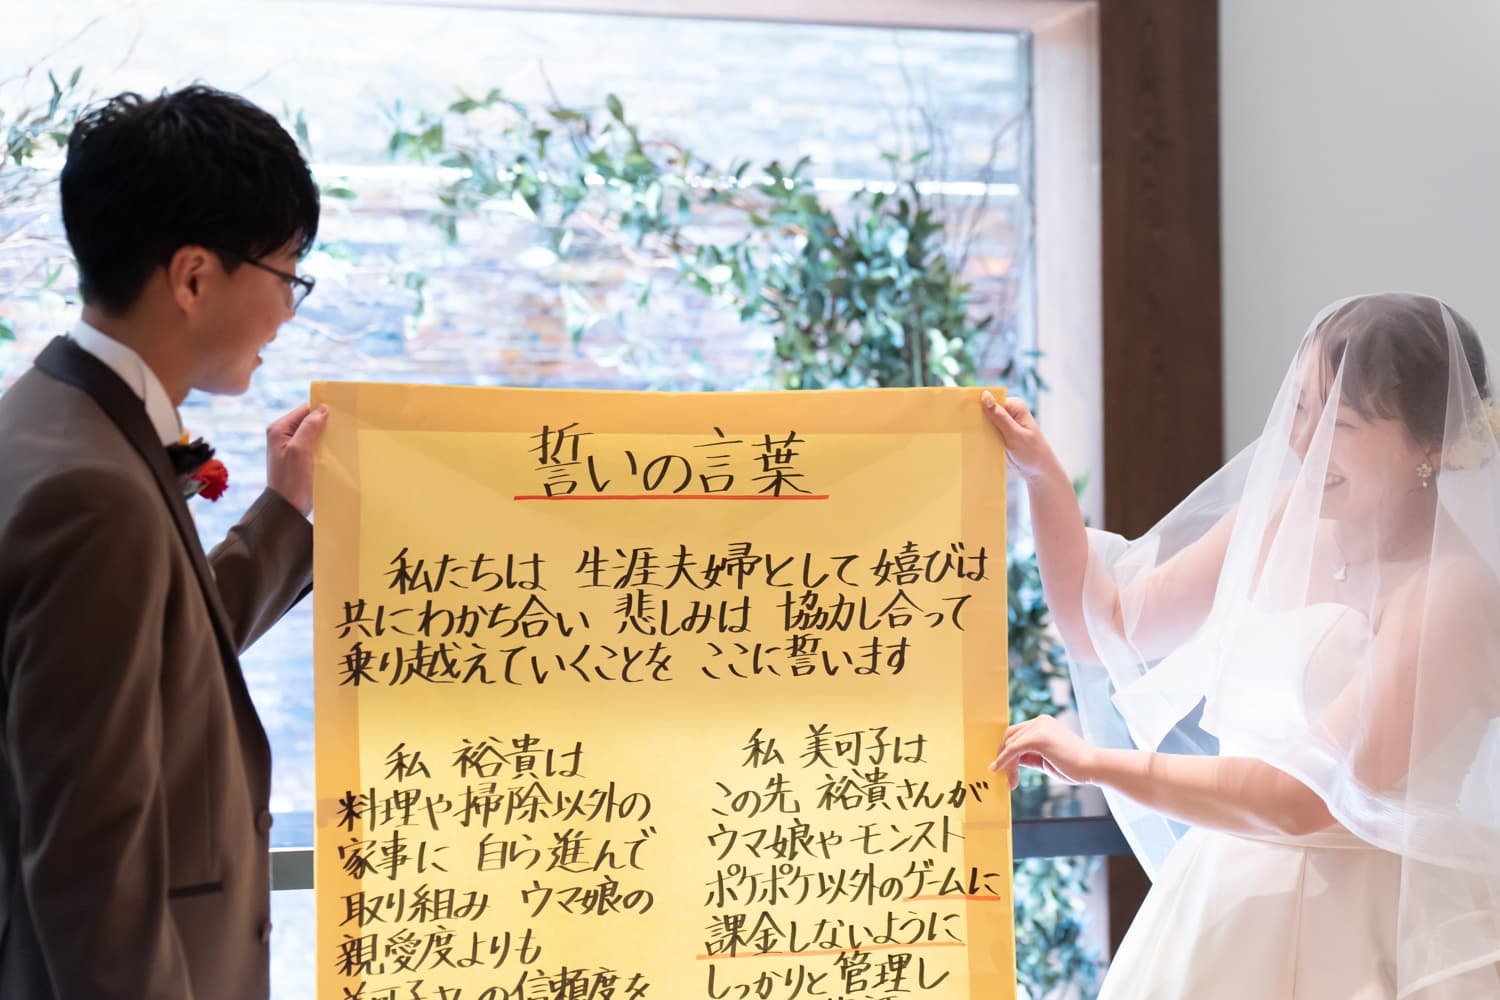 誓いの言葉
私たちは 生涯夫婦として 嬉びは
共にわかち合い 悲しみは 協力し合って
乗り越えていくことを ここに誓います
私 裕貴は
料理や掃除以外の
家事に 自ら進んで
取り組み ウマ娘の
親愛度よりも
美可子さんの信頼度を
私 美可子は
この先 裕貴さんが
ウマ娘やモンスト
ポケポケ以外のゲームに
課金しないように
しっかりと管理し